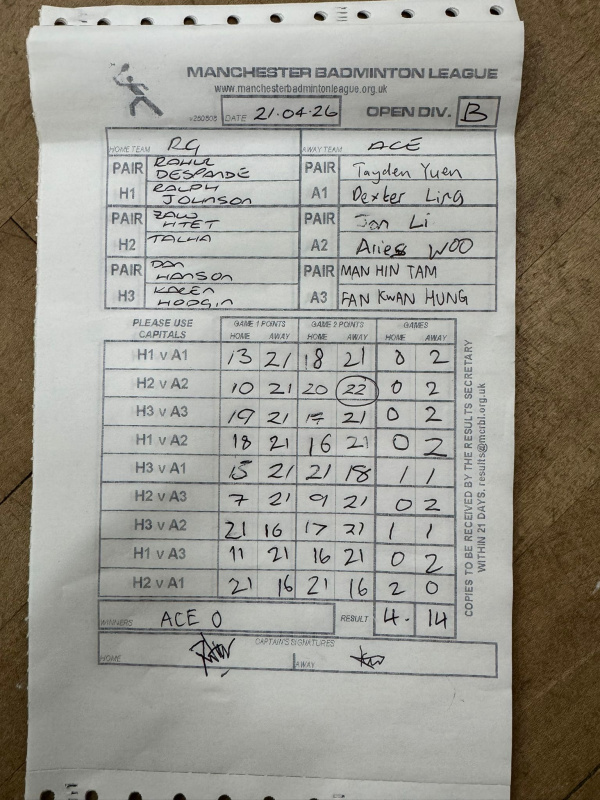 MANCHESTER BADMINTON LEAGUE
www.manchesterbadmintonleague.org.uk
v250505 DATE 21.04.26 OPEN DIV. B
HOME TEAM RG AWAY TEAM ACE
PAIR H1 RAHUL DESPANDE RALPH JOHNSON PAIR A1 Tayden Yuen Dexter Ling
PAIR H2 ZAW HTET TALHA PAIR A2 Jon Li Aries WOO
PAIR H3 DAN HANSON KAREN HODGIN PAIR A3 MAN HIN TAM FAN KWAN HUNG
PLEASE USE CAPITALS GAME 1 POINTS GAME 2 POINTS GAMES
HOME AWAY HOME AWAY HOME AWAY
H1 v A1 13 21 18 21 0 2
H2 v A2 10 21 20 22 0 2
H3 v A3 19 21 17 21 0 2
H1 v A2 18 21 16 21 0 2
H3 v A1 15 21 21 18 1 1
H2 v A3 7 21 9 21 0 2
H3 v A2 21 16 17 21 1 1
H1 v A3 11 21 16 21 0 2
H2 v A1 21 16 21 16 2 0
WINNERS ACE O RESULT 4 - 14
CAPTAIN'S SIGNATURES
HOME AWAY
COPIES TO BE RECEIVED BY THE RESULTS SECRETARY
WITHIN 21 DAYS. results@mcrbl.org.uk